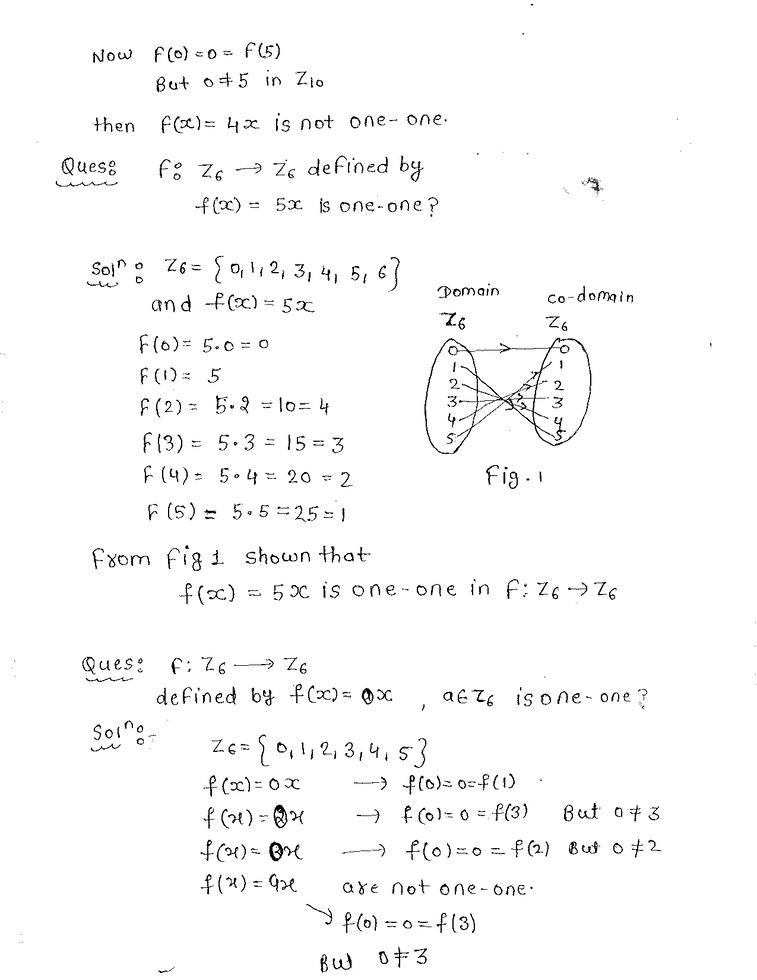 Now f(0)=0= f(5)
But 0≠5 in Z10
then f(x)= 4x is not one-one.
Ques: f: Z6 → Z6 defined by
f(x) = 5x is one-one?
Solⁿ: Z6= {0,1,2,3,4,5,6}
and f(x)=5x
Domain co-domain
Z6 Z6
f(0)= 5.0=0
f(1)= 5
f(2)= 5.2=10=4
f(3)= 5.3=15=3
f(4)= 5.4=20=2
f(5)= 5.5=25=1
0 0
1 1
2 2
3 3
4 4
5 5
Fig.1
From Fig 1 shown that
f(x) = 5x is one-one in f: Z6→Z6
Ques: f: Z6 → Z6
defined by f(x)= x , a∈Z6 is one-one?
Solⁿ:-
Z6= {0,1,2,3,4,5}
f(x)=0x → f(0)=0=f(1)
f(x)=2x → f(0)=0=f(3) But 0≠3
f(x)=3x → f(0)=0=f(2) But 0≠2
f(x)=4x are not one-one.
→ f(0)=0=f(3)
But 0≠3